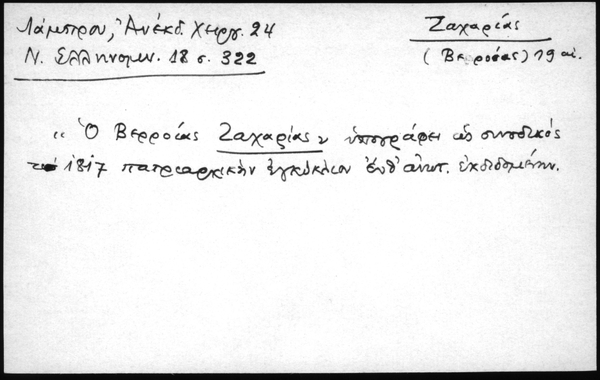 Λάμπρου, Ἀνέκδ. χειρ. 24
Ν. Ἑλληνομν. 18 σ. 322
Ζαχαρίας
(Βερροίας) 19 αἰ.
" Ὁ Βερροίας Ζαχαρίας ὑπογράφει ὡς συνοδικός
1817 πατριαρχικὴν ἐγκύκλιον ἐνθ' ἀνωτ. ἐκδιδομένην.